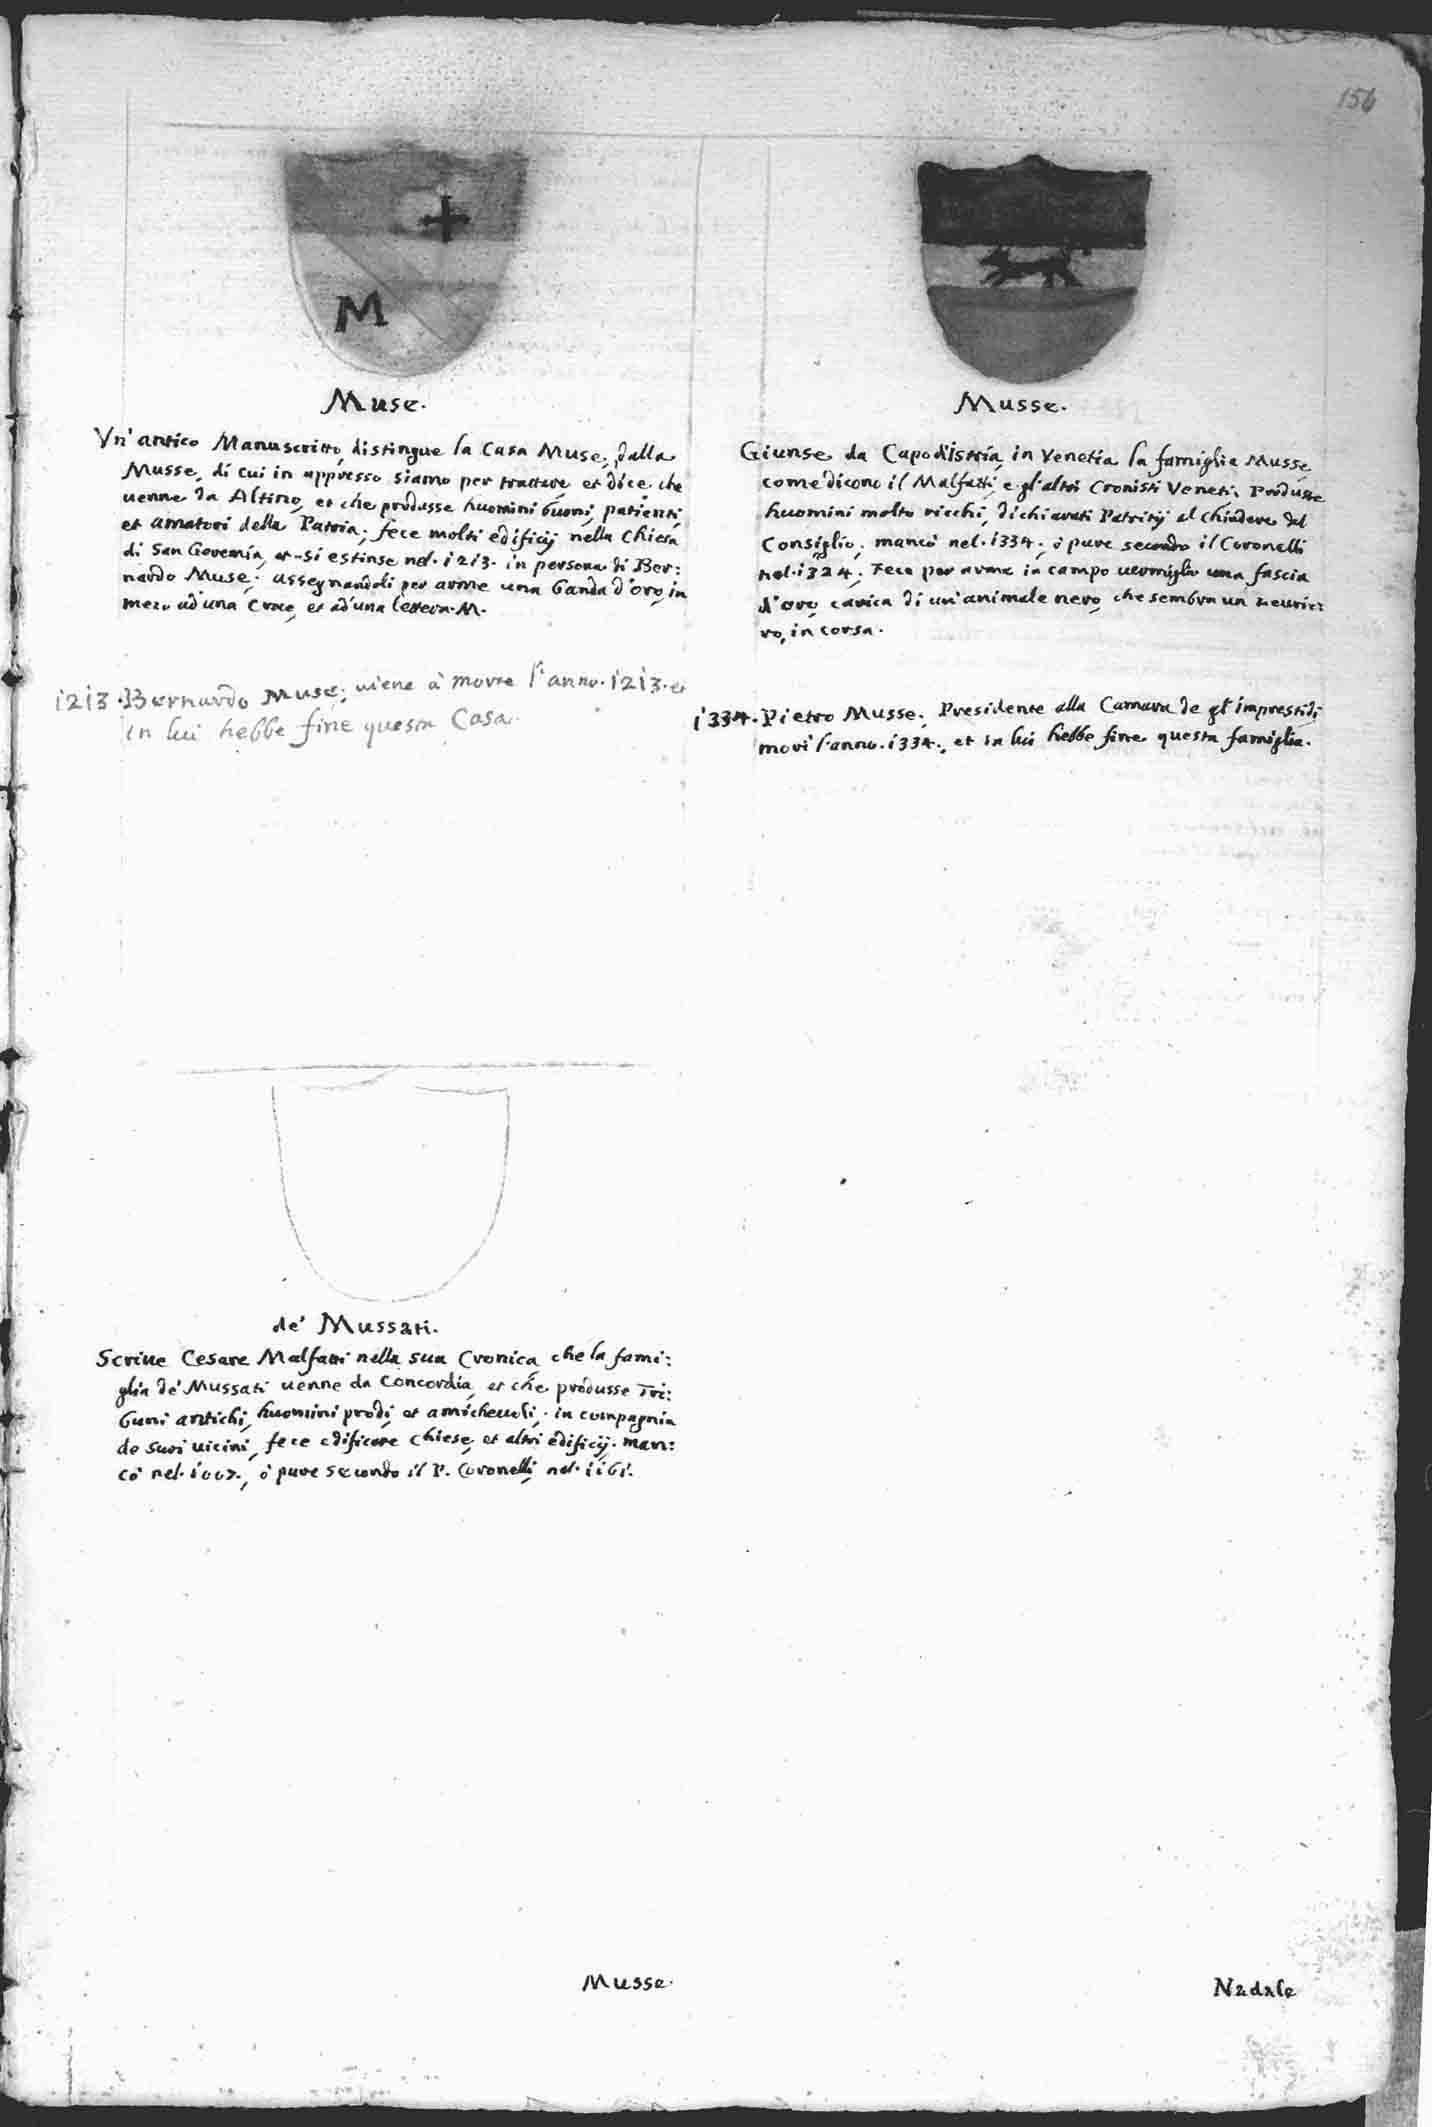 156
M
Muse.
Vn' antico Manuscritto, distingue la Casa Muse, dalla
Musse, di cui in appresso siamo per trattare, et dice, che
uenne da Altino, et che produsse huomini buoni, patienti,
et amatori della Patria; fece molti edificij nella Chiesa
di San Geremia, et si estinse nel. 1213. in persona di Ber:
nardo Muse; assegnandoli per arme una banda d'oro, in
mezo ad una Croce, et ad una lettera. M.
1213. Bernardo Muse; uiene à morte l'anno. 1213. et
in lui hebbe fine questa Casa.
de' Mussati.
Scriue Cesare Malfatti nella sua Cronica, che la fami:
glia de' Mussati uenne da Concordia, et che produsse Tri:
buni antichi, huomini prodi, et amicheuoli; in compagnia
de suoi uicini, fece edificare chiese, et altri edificij: man:
cò nel. 1007., ò pure secondo il P. Coronelli, nel. 1161.
Musse.
Musse.
Giunse da Capod'Istria, in Venetia la famiglia Musse,
come dicono il Malfatti, e gl'altri Cronisti Veneti. Produsse
huomini molto ricchi, dichiarati Patritij al chiudere del
Consiglio; mancò nel. 1334.; ò pure secondo il Coronelli
nel. 1324. Fece per arma in campo uermiglio una fascia
d'oro, carica di un'animale nero, che sembra un Leurie:
ro, in corsa.
1334. Pietro Musse; Presidente alla Camara de gl'imprestidi,
morì l'anno. 1334., et in lui hebbe fine questa famiglia.
Nadale